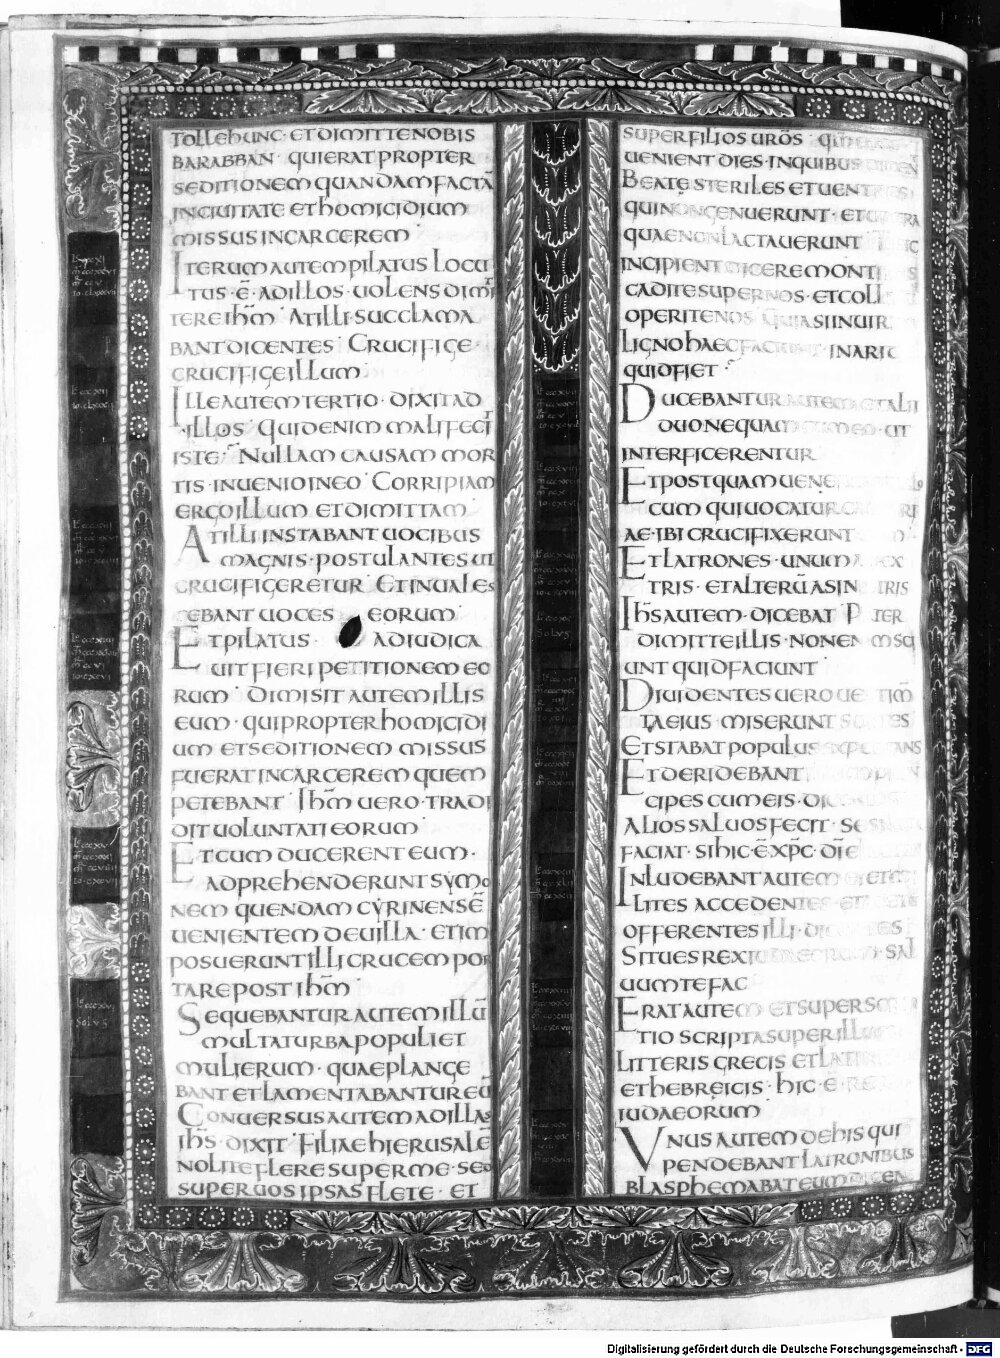 TOLLE HUNC · ET DIMITTE NOBIS
BARABBAN · QUI ERAT PROPTER
SEDITIONEM QUANDAM FACTĀ
IN CIUITATE ET HOMICIDIUM
MISSUS IN CARCEREM ·
ITERUM AUTEM PILATUS LOCU
TUS · Ē · AD ILLOS · UOLENS DIMIT
TERE IHM̄ · AT ILLI SUCCLAMA
BANT DICENTES · CRUCIFIGE ·
CRUCIFIGE ILLUM ·
ILLE AUTEM TERTIO · DIXIT AD
ILLOS · QUID ENIM MALI FECIT
ISTE · NULLAM CAUSAM MOR
TIS · INUENIO IN EO · CORRIPIAM
ERGO ILLUM ET DIMITTAM
AT ILLI INSTABANT UOCIBUS
MAGNIS · POSTULANTES UT
CRUCIFIGERETUR · ET INUALES
CEBANT UOCES EORUM ·
ET PILATUS · ADIUDICA
UIT FIERI PETITIONEM EO
RUM · DIMISIT AUTEM ILLIS
EUM · QUI PROPTER HOMICIDI
UM ET SEDITIONEM MISSUS
FUERAT IN CARCEREM QUEM
PETEBANT · IHM̄ UERO · TRADI
DIT UOLUNTATI EORUM ·
ET CUM DUCERENT EUM ·
ADPREHENDERUNT SYMO
NEM QUENDAM CYRINENSĒ
UENIENTEM DE UILLA · ET IM
POSUERUNT ILLI CRUCEM POR
TARE POST IHM̄ ·
SEQUEBANTUR AUTEM ILLŪ
MULTA TURBA POPULI ET
MULIERUM · QUAE PLANGE
BANT ET LAMENTABANTUR EŪ
CONUERSUS AUTEM AD ILLAS
IHS̄ · DIXIT · FILIAE HIERUSALĒ
NOLITE FLERE SUPER ME · SED
SUPER UOS IPSAS FLETE · ET
SUPER FILIOS UR̄OS ·
UENIENT DIES · IN QUIBUS
BEATĘ STERILES ET UENTRES
QUI NON GENUERUNT · ET
QUAE NON LACTAUERUNT
INCIPIENT DICERE MONTI
CADITE SUPER NOS · ET COLL
OPERITE NOS · QUIA SI IN UIR
LIGNO HAEC FACIUNT · IN ARI
QUID FIET ·
DUCEBANTUR AUTEM ET ALII
DUO NEQUAM CUM EO · UT
INTERFICERENTUR
ET POSTQUAM UENE
CUM QUI UOCATUR
AE · IBI CRUCIFIXERUNT
ET LATRONES · UNUM A DEX
TRIS · ET ALTERŪ A SINISTRIS
IHS̄ AUTEM · DICEBAT PATER
DIMITTE ILLIS · NON ENIM SCI
UNT QUID FACIUNT ·
DIUIDENTES UERO UESTIM̄
TA EIUS · MISERUNT SORTES
ET STABAT POPULUS EXPECTANS
ET DERIDEBANT
CIPES CUM EIS · DICENTES
ALIOS SALUOS FECIT · SE
FACIAT · SI HIC · Ē XPC̄ · DI EL
INLUDEBANT AUTEM EI ET MI
LITES ACCEDENTES · ET
OFFERENTES ILLI · DICENTES
SI TU ES REX IUDAEORUM SAL
UUM TE FAC
ERAT AUTEM ET SUPERSC
TIO SCRIPTA SUPER ILLUM
LITTERIS GRECIS ET LATI
ET HEBREICIS · HIC · Ē · RE
IUDAEORUM
UNUS AUTEM DE HIS QUI
PENDEBANT LATRONIBUS
BLASPHEMABAT EUM DICEN
Digitalisierung gefördert durch die Deutsche Forschungsgemeinschaft - DFG